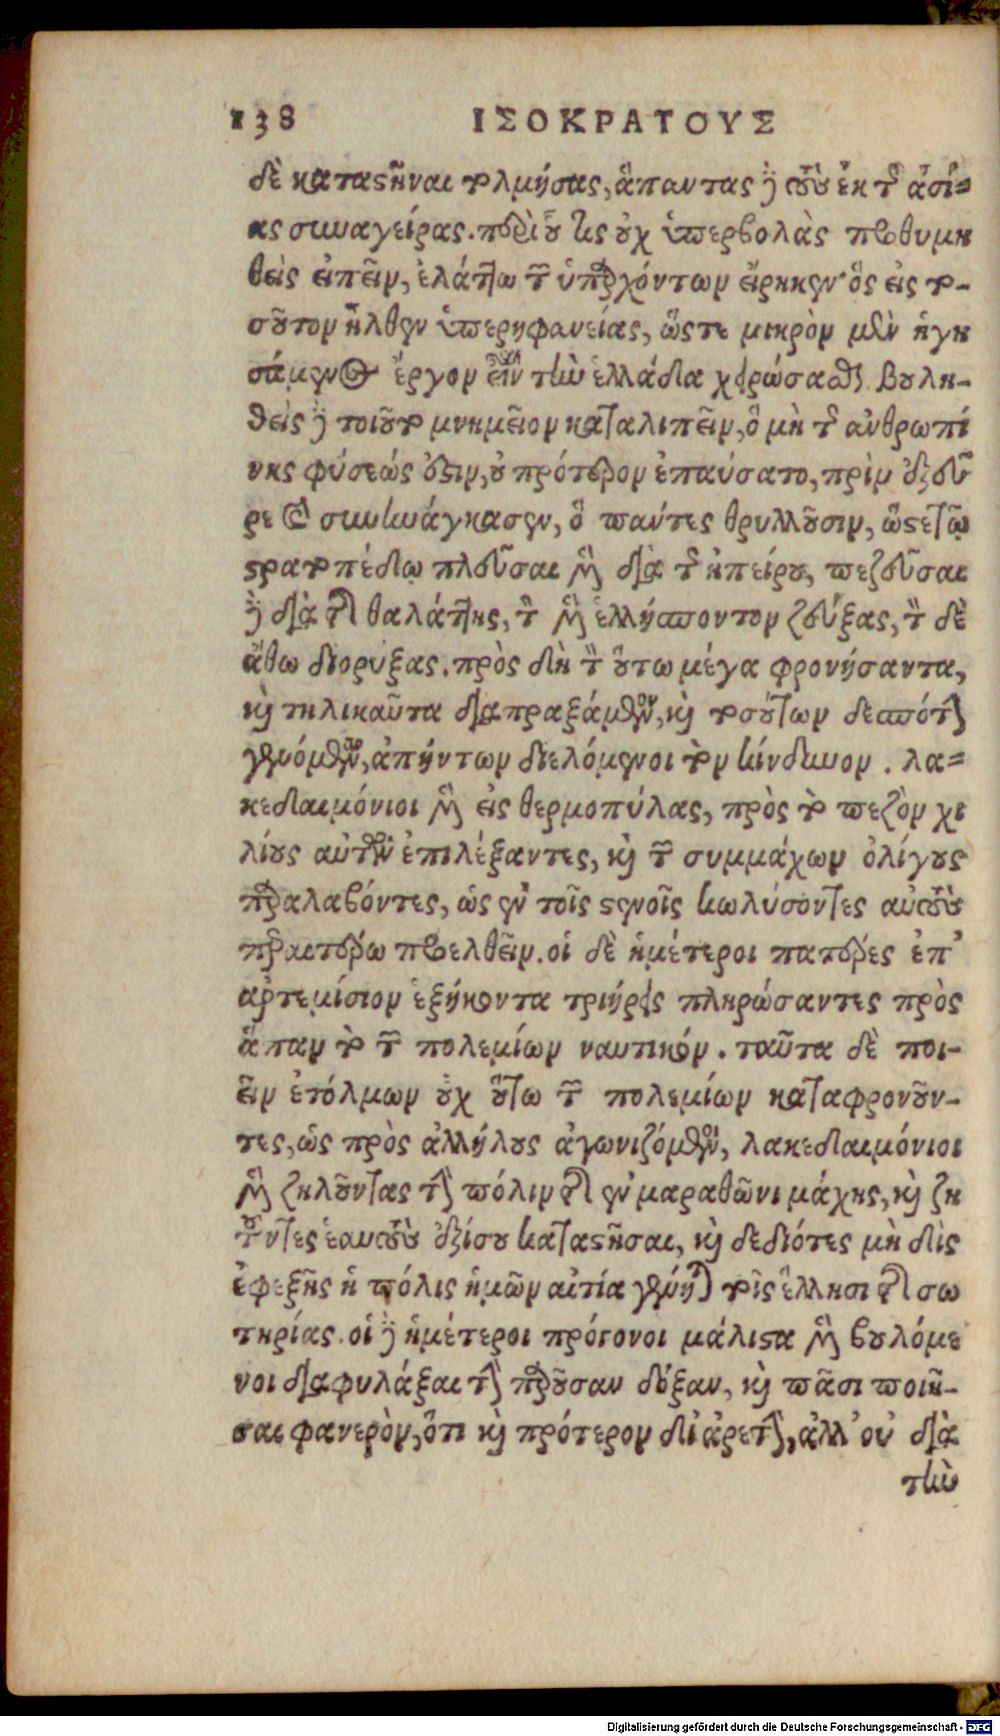 138 ΙΣΟΚΡΑΤΟΥΣ
δὲ καταστῆναι τολμήσας, ἅπαντας δὲ τοὺς ἐκ τῆς ἀσί-
ας συναγείρας. περὶ οὗ τίς οὐχ ὑπερβολὰς προθυμη
θεὶς εἰπεῖν, ἐλάττω τῶν ὑπαρχόντων εἴρηκεν· ὃς εἰς το-
σοῦτον ἦλθεν ὑπερηφανείας, ὥστε μικρὸν μὲν ἡγη
σάμενος ἔργον εἶναι τὴν ἑλλάδα χειρώσασθαι βουλη-
θεὶς δὲ τοιοῦτο μνημεῖον καταλιπεῖν, ὃ μὴ τῆς ἀνθρωπί
νης φύσεώς ἐστιν, οὐ πρότερον ἐπαύσατο, πρὶν ἐξεῦ
ρε καὶ συνηνάγκασεν, ὃ πάντες θρυλλοῦσιν, ὥστε τῷ
στρατοπέδῳ πλεῦσαι μὲν διὰ τῆς ἠπείρου, πεζεῦσαι
δὲ διὰ τῆς θαλάττης, τὸν μὲν ἑλλήσποντον ζεύξας, τὸν δὲ
ἄθω διορύξας. πρὸς δὴ τὸν οὕτω μέγα φρονήσαντα,
καὶ τηλικαῦτα διαπραξάμενον, καὶ τοσούτων δεσπότην
γενόμενον, ἀπήντων διελόμενοι τὸν κίνδυνον. λα-
κεδαιμόνιοι μὲν εἰς θερμοπύλας, πρὸς τὸ πεζὸν χι
λίους αὐτῶν ἐπιλέξαντες, καὶ τῶν συμμάχων ὀλίγους
παραλαβόντες, ὡς ἐν τοῖς στενοῖς κωλύσοντες αὐτοὺς
περαιτέρω προελθεῖν. οἱ δὲ ἡμέτεροι πατέρες ἐπ’
ἀρτεμίσιον ἑξήκοντα τριήρεις πληρώσαντες πρὸς
ἅπαν τὸ τῶν πολεμίων ναυτικόν. ταῦτα δὲ ποι-
εῖν ἐτόλμων οὐχ οὕτω τῶν πολεμίων καταφρονοῦν-
τες, ὡς πρὸς ἀλλήλους ἀγωνιζόμενοι, λακεδαιμόνιοι
μὲν ζηλοῦντας τὴν πόλιν τῆς ἐν μαραθῶνι μάχης, καὶ ζη
τοῦντες ἑαυτοὺς ἐξίσου καταστῆσαι, καὶ δεδιότες μὴ δὶς
ἐφεξῆς ἡ πόλις ἡμῶν αἰτία γένηται τοῖς ἕλλησι τῆς σω
τηρίας. οἱ δὲ ἡμέτεροι πρόγονοι μάλιστα μὲν βουλόμε
νοι διαφυλάξαι τὴν παροῦσαν δόξαν, καὶ πᾶσι ποιῆ-
σαι φανερὸν, ὅτι καὶ πρότερον δι’ ἀρετὴν, ἀλλ’ οὐ διὰ
τὴν
Digitalisierung gefördert durch die Deutsche Forschungsgemeinschaft - DFG